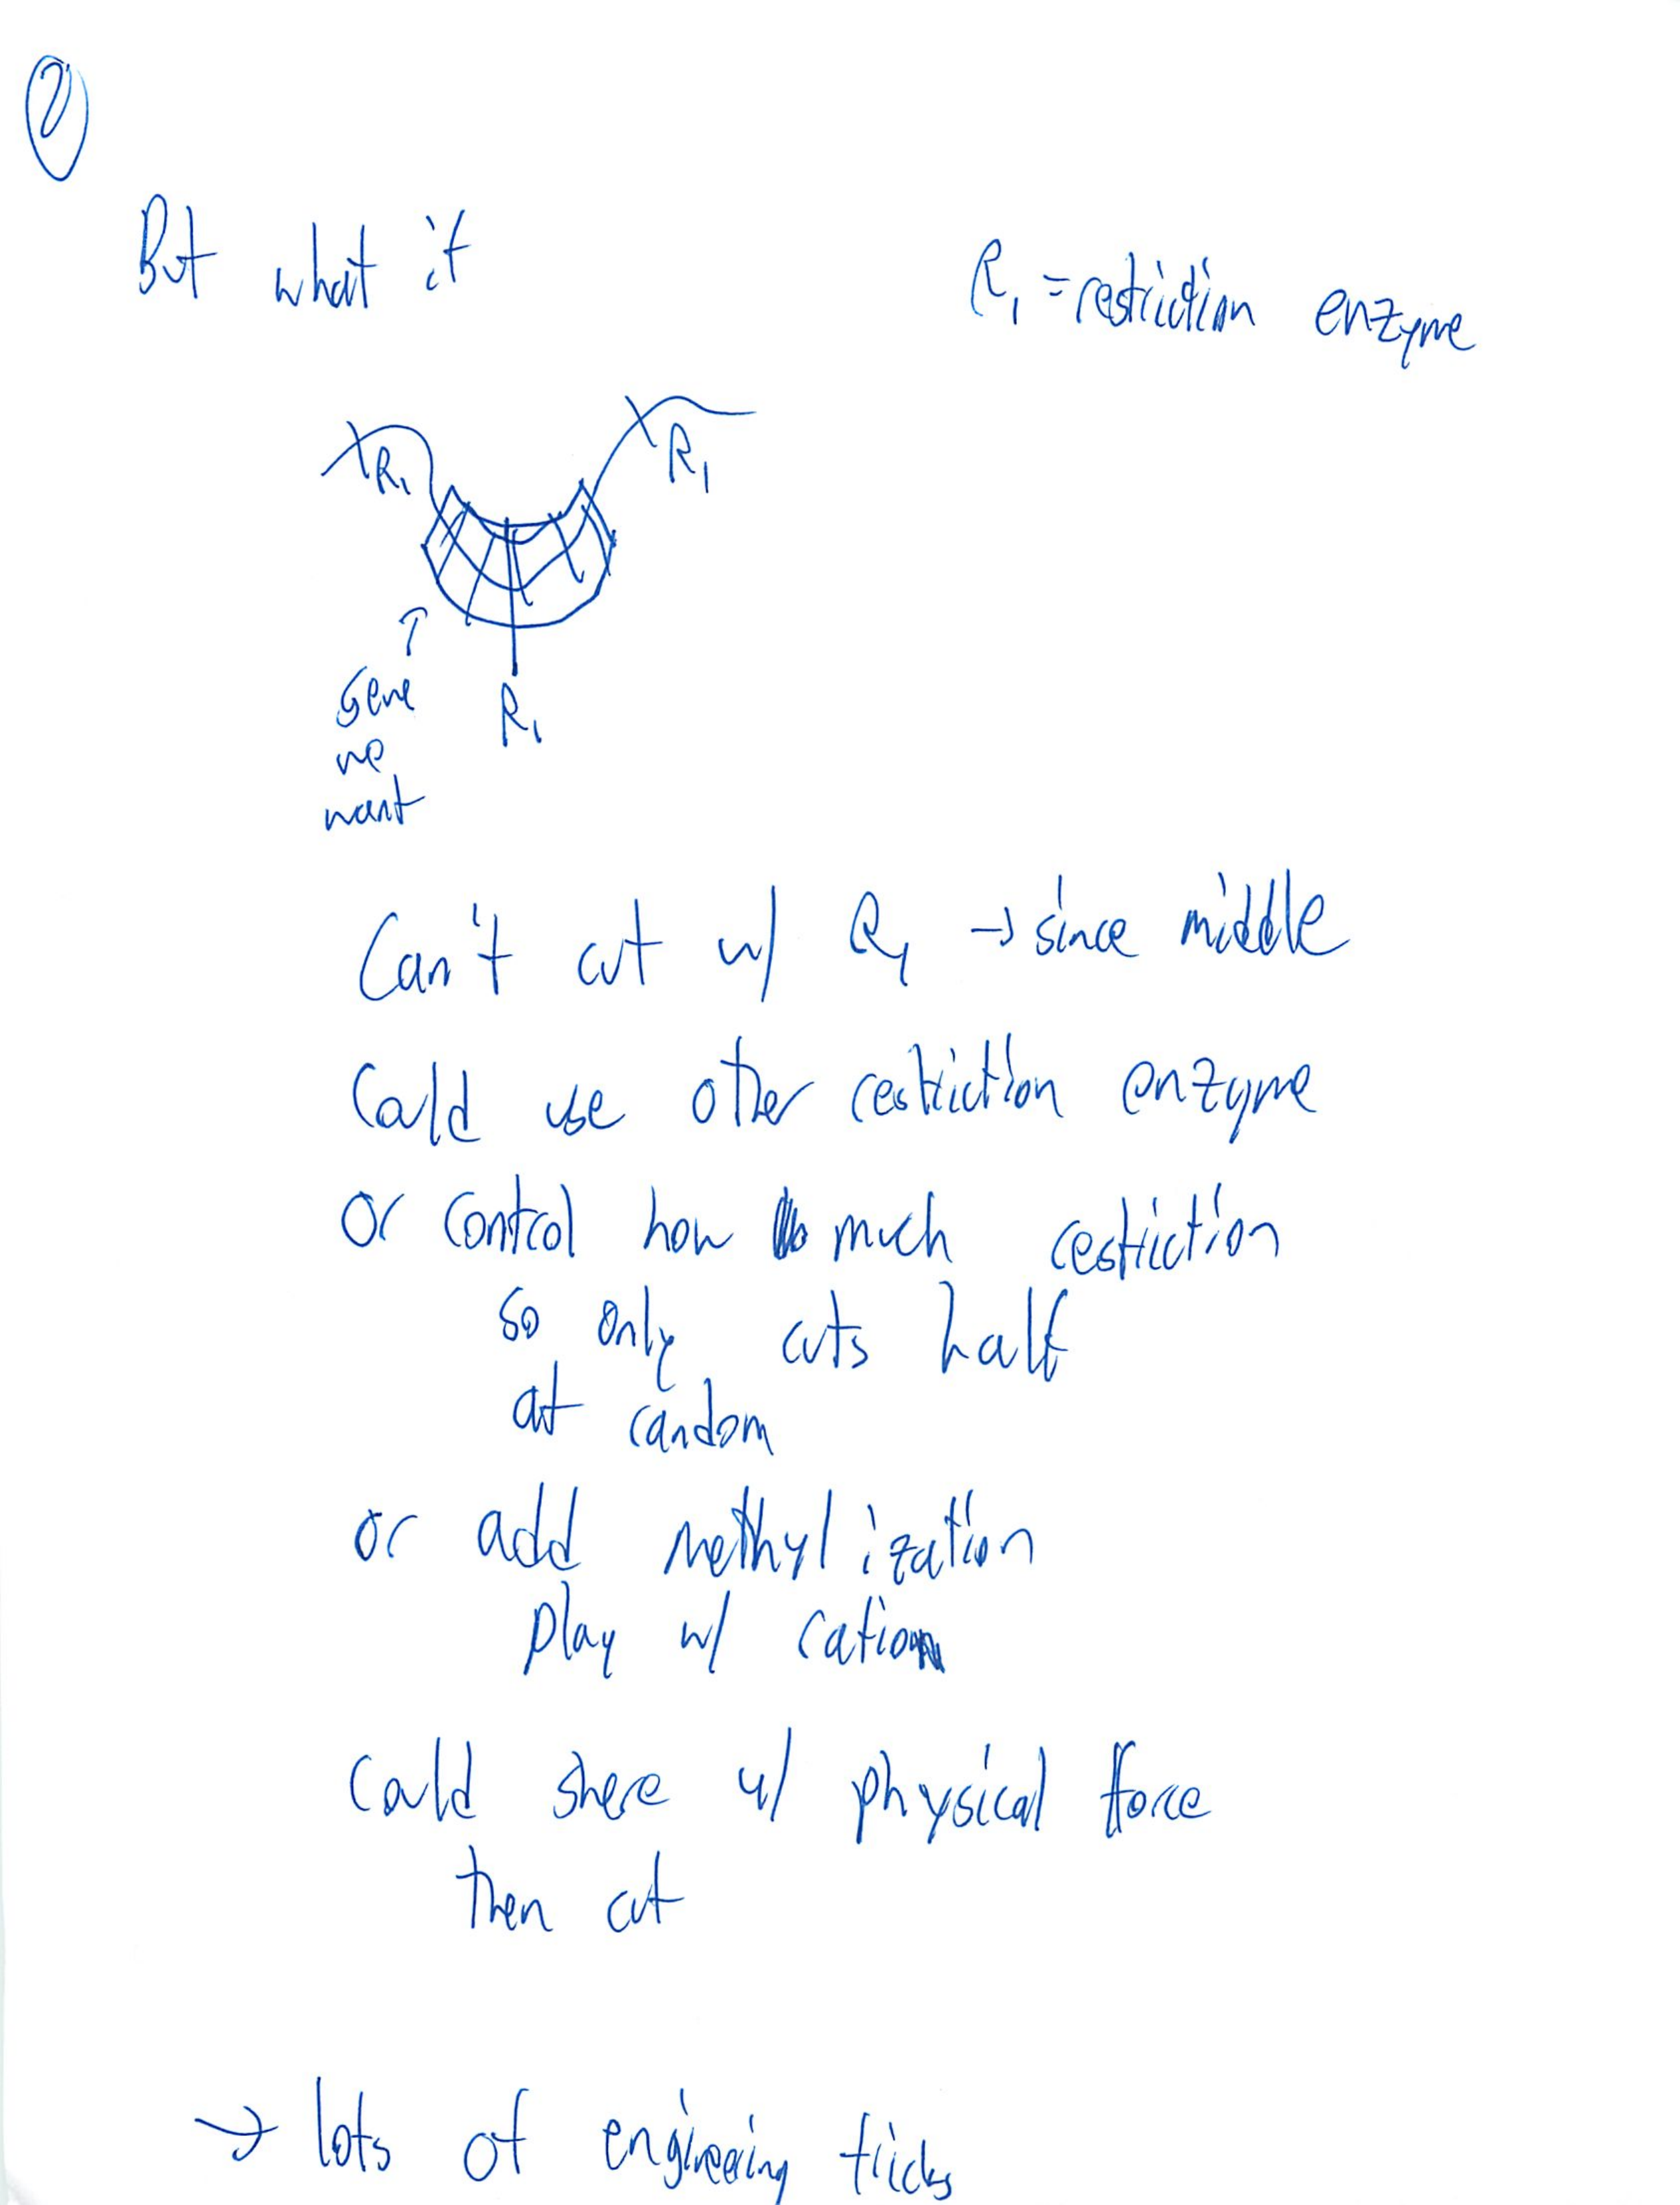 2
But what if
R1 = restriction enzyme
R1
R1
R1
Gene
we
want
Can't cut w/ R1 → since middle
Could use other restriction enzyme
or control how much restriction
so only cuts half
at random
or add methylization
play w/ cation
Could shere w/ physical force
then cut
→ lots of engineering tricks